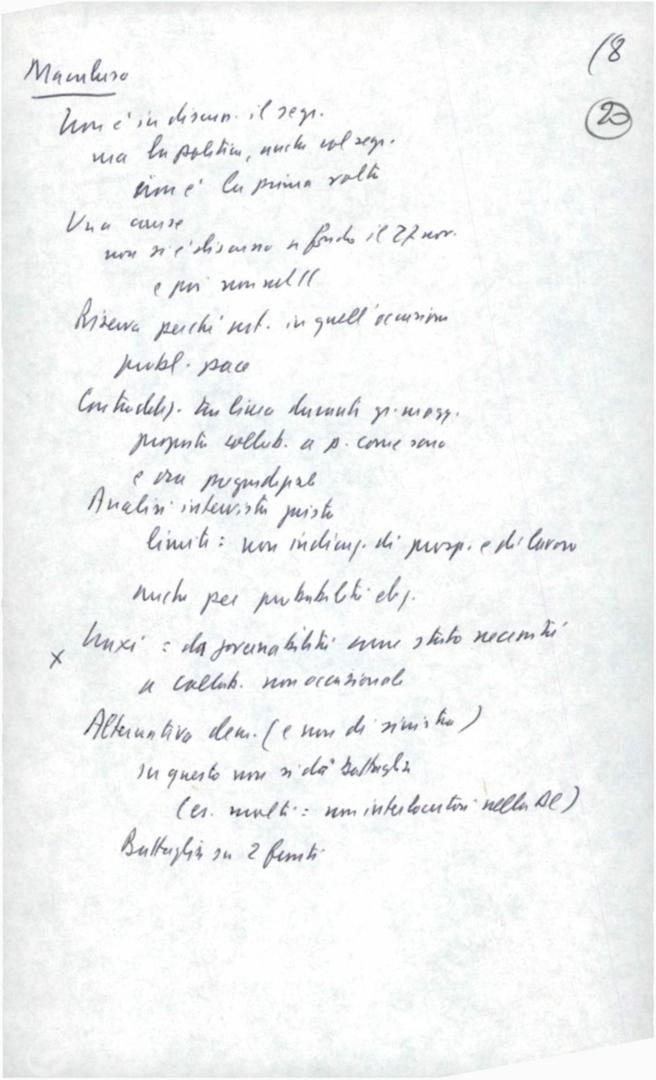 18
Macaluso
20
Non è in discuss. il segr.
ma la politica, anche col segr.
non è la prima volta
Una cause
non si è discusso a fondo il 27 nov.
e poi non sull'
Riserva perché in quell'occasione
probl. pace
linea durante
proposta collab. a p. come sono
e ora
Analisi intervista giusta
limiti: non indicaz. di prosp. e di lavoro
anche per probabilità
x : da governabilità come stato necessità
a collab. non occasionale
Alternativa dem. (e non di sinistra)
su questo non si dà battaglia
(es. molti: non interlocutori nella DC)
Battaglia su 2 fronti